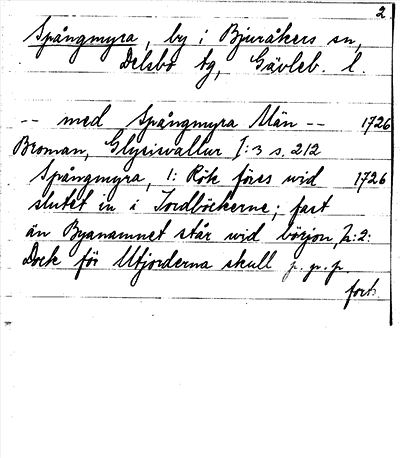 2
Spångmyra, by i Bjuråkers sn,
Delsbo tg, Gävleb. l.
-- med Spångmyra Män -- 1726
Broman, Glysisvallur I:3 s. 212
Spångmyra, 1: Rök föres wid 1726
slutet in i Jordböckerne; fast
än Byanamnet står wid börjon, 2:
Dock för Utjorderna skull p. p. p
forts.